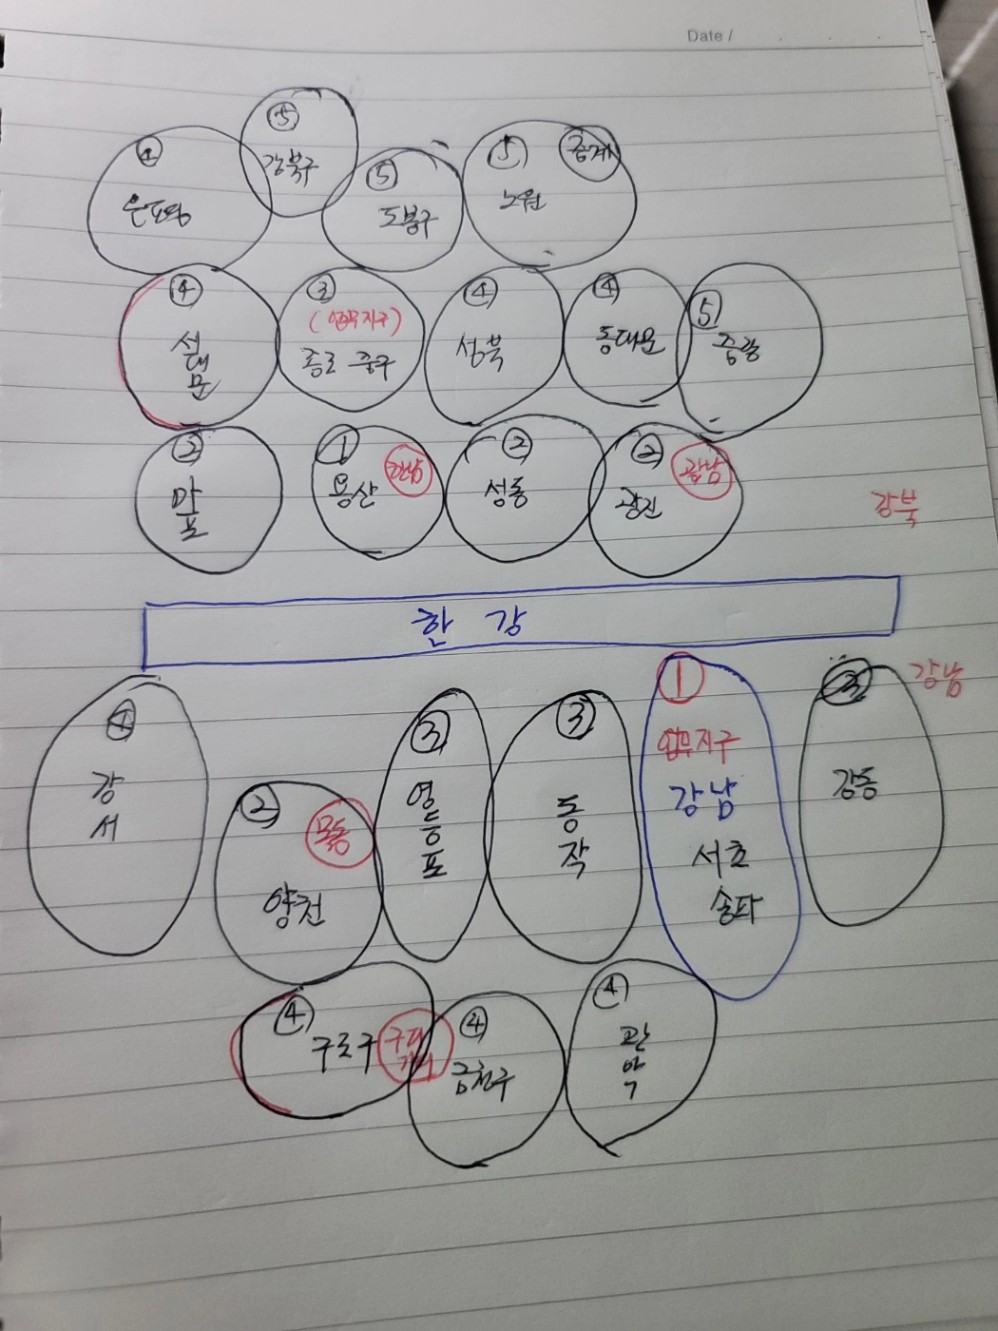 Date /
⑤
강북구
④
은평
⑤
도봉구
⑤
중계
노원
④
서대문
③
(업무지구)
종로 중구
④
성북
④
동대문
⑤
중랑
②
마포
①
한남
용산
②
성동
②
광남
광진
강북
한강
강남
④
강서
②
목동
양천
③
영등포
③
동작
①
업무지구
강남
서초
송파
③
강동
④
구로구
④
금천구
④
관악